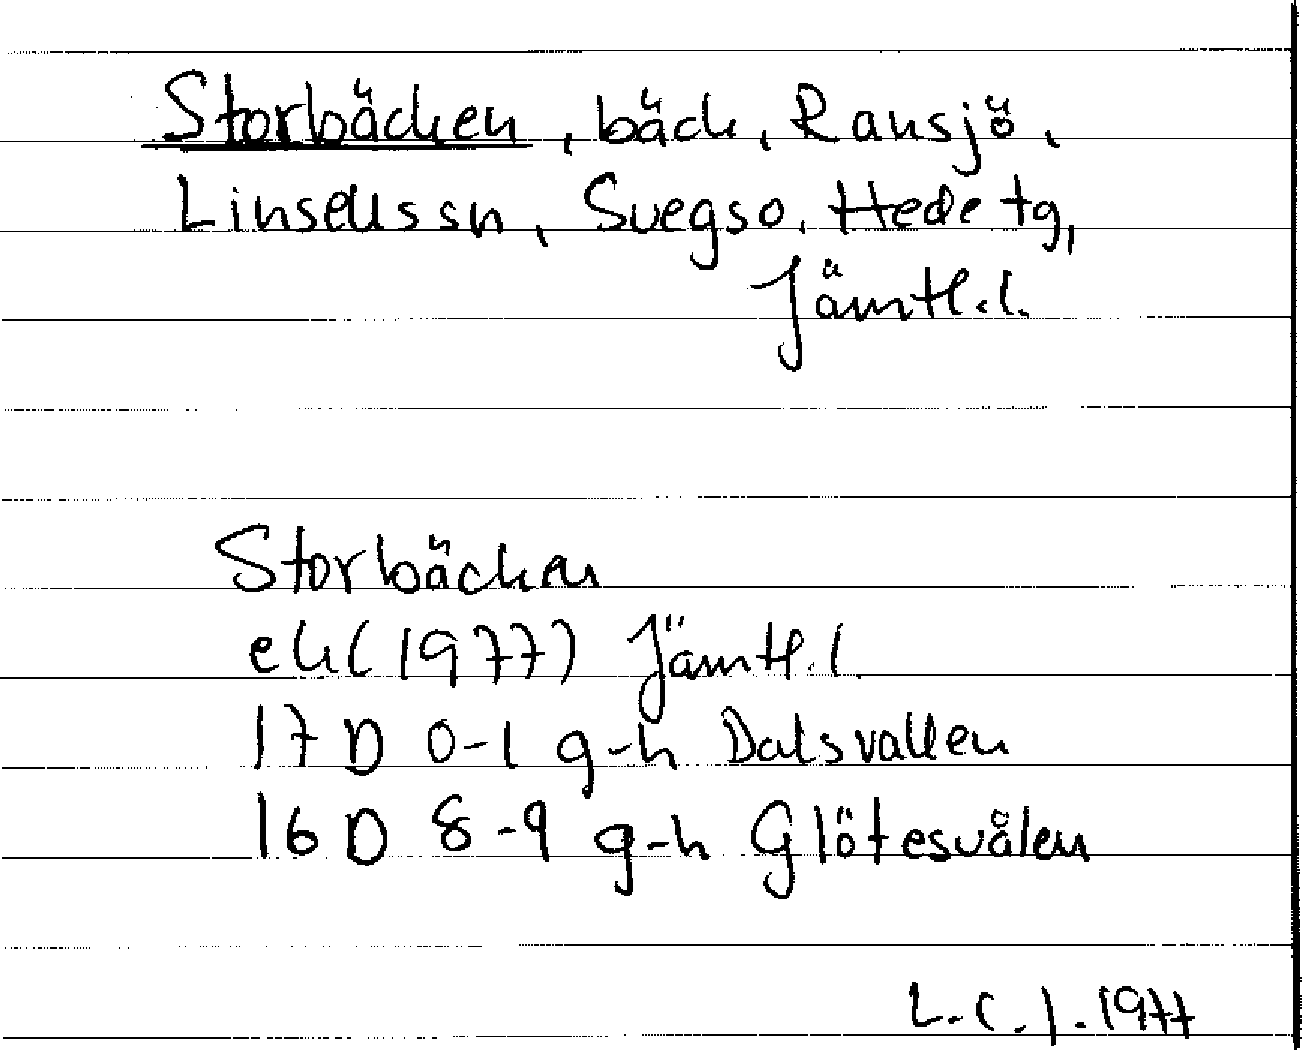 Storbäcken, bäck, Ransjö,
Linsells sn, Svegs o. Hede tg,
Jämtl.l.
Storbäcken
ek (1977) Jämtl.l.
17 D 0-1 g-h Dalsvallen
16 D 8-9 g-h Glötesvålen
L.C.J. 1977